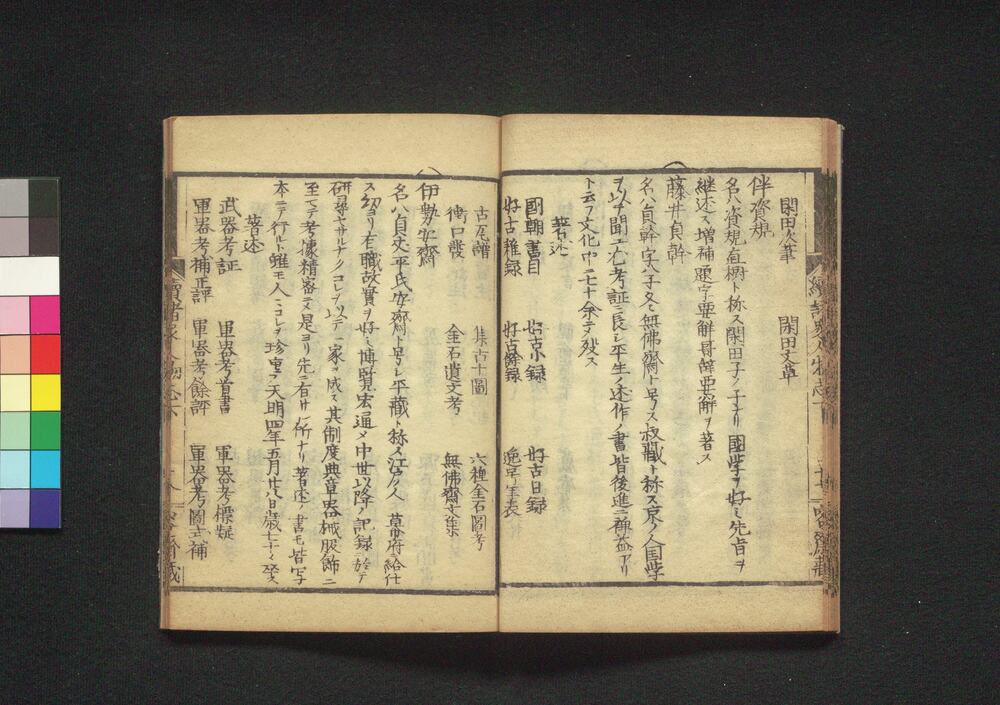 閑田次筆　閑田文草
伴資規
名ハ資規直樹ト称ス閑田子ノ子ナリ國学ヲ好ミ先旨ヲ
継述ス増補題字要解冊辞要解ヲ著ス
藤井貞幹
名ハ貞幹字ハ子冬ミ無佛齋ト号ス叔藏ト称ス京ノ人国学
ヲ以テ聞エ尤考証ニ長シ平生ノ述作ノ書皆後進ニ裨益アリ
ト云フ文化中ニ七十余ニテ歿ス
著述
國朝書目　好古小録　好古日録
好古雜録　好古餘録　逸号年表
古瓦譜　集古十圖　六種金石圖考
衝口發　金石遺文考　無佛齋文集
伊勢安齋
名ハ貞丈平氏安齋ト号シ平藏ト称ス江戸ノ人幕府ニ給仕
ス幼ヨリ有職故實ヲ好ミ博覧宏通メ中世以降ノ記録ニ於テ
研尋セサルナクコレヲ以テ一家ヲ成ス其制度典章器械服飾ニ
至テ考據精密ニメ是ヨリ先ニ有サル所ナリ著述ノ書モ皆写
本ニテ行ルト雖モ人コレヲ珍重ス天明四年五月廿八日歳七十ニ卒ス
著述
武器考証　軍器考首書　軍器考標疑
軍器考補正評　軍器考餘評　軍器考圖式補